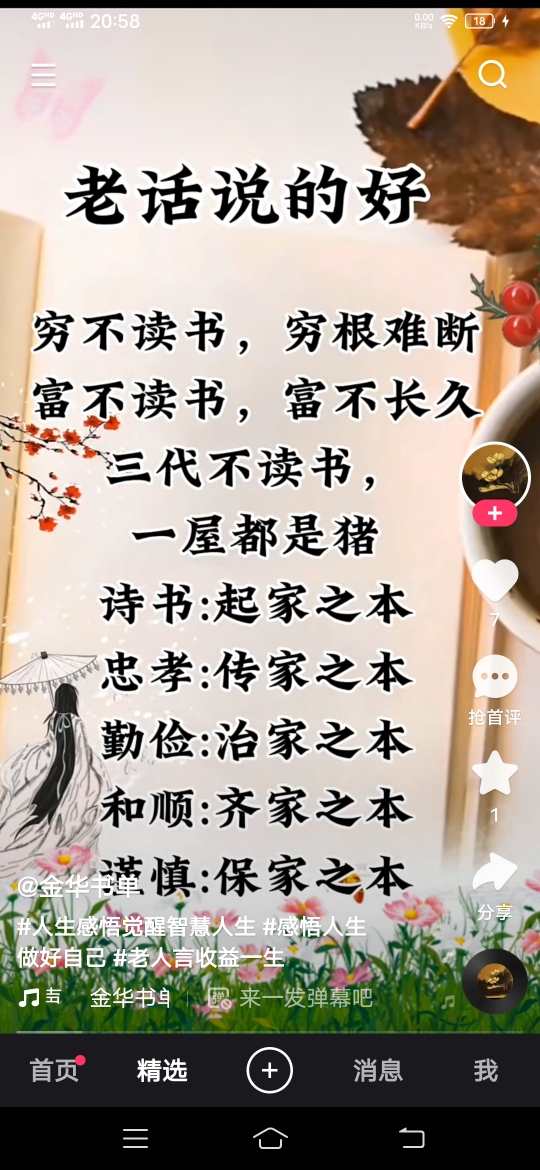 4GHD 4GHD 20:58 0.00 KB/s 18
老话说的好
穷不读书，穷根难断
富不读书，富不长久
三代不读书，
一屋都是猪
诗书:起家之本
忠孝:传家之本
勤俭:治家之本
和顺:齐家之本
谨慎:保家之本
7
抢首评
1
分享
@金华书单
#人生感悟觉醒智慧人生 #感悟人生
做好自己 #老人言收益一生
金华书 弹 来一发弹幕吧
首页 精选 消息 我